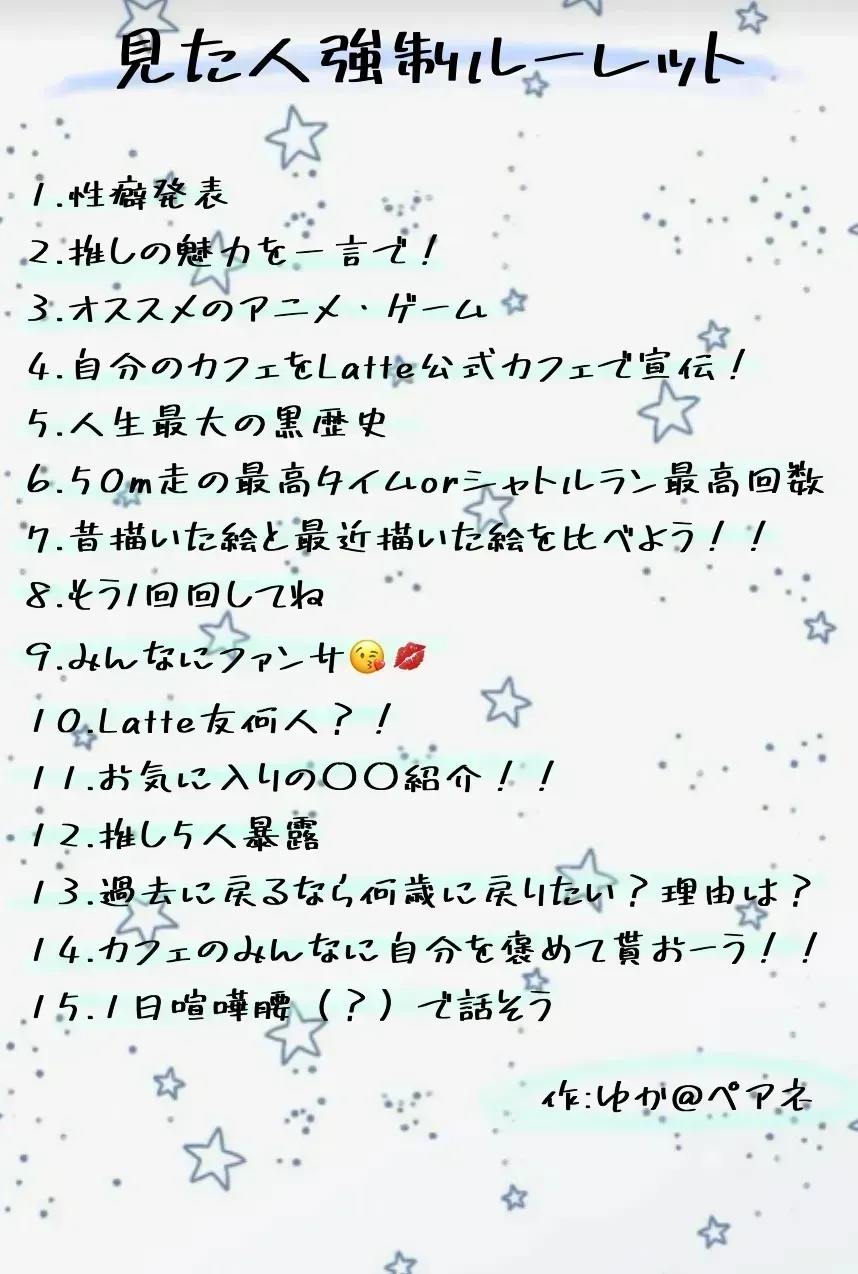 見た人強制ルーレット
1.性癖発表
2.推しの魅力を一言で！
3.オススメのアニメ・ゲーム
4.自分のカフェをLatte公式カフェで宣伝！
5.人生最大の黒歴史
6.50m走の最高タイムorシャトルラン最高回数
7.昔描いた絵と最近描いた絵を比べよう！！
8.もう1回回してね
9.みんなにファンサ😘💋
10.Latte友何人？！
11.お気に入りの〇〇紹介！！
12.推し5人暴露
13.過去に戻るなら何歳に戻りたい？理由は？
14.カフェのみんなに自分を褒めて貰おーう！！
15.1日喧嘩腰（？）で話そう
作:ゆか@ペアネ